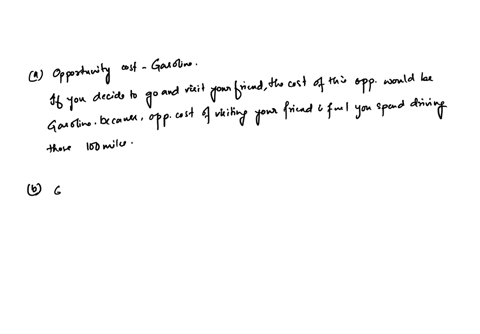 (a) Opportunity cost - Gasoline.
If you decide to go and visit your friend, the cost of this opp. would be
Gasoline. because, opp. cost of visiting your friend is fuel you spend driving
those 100 miles.
(b) G